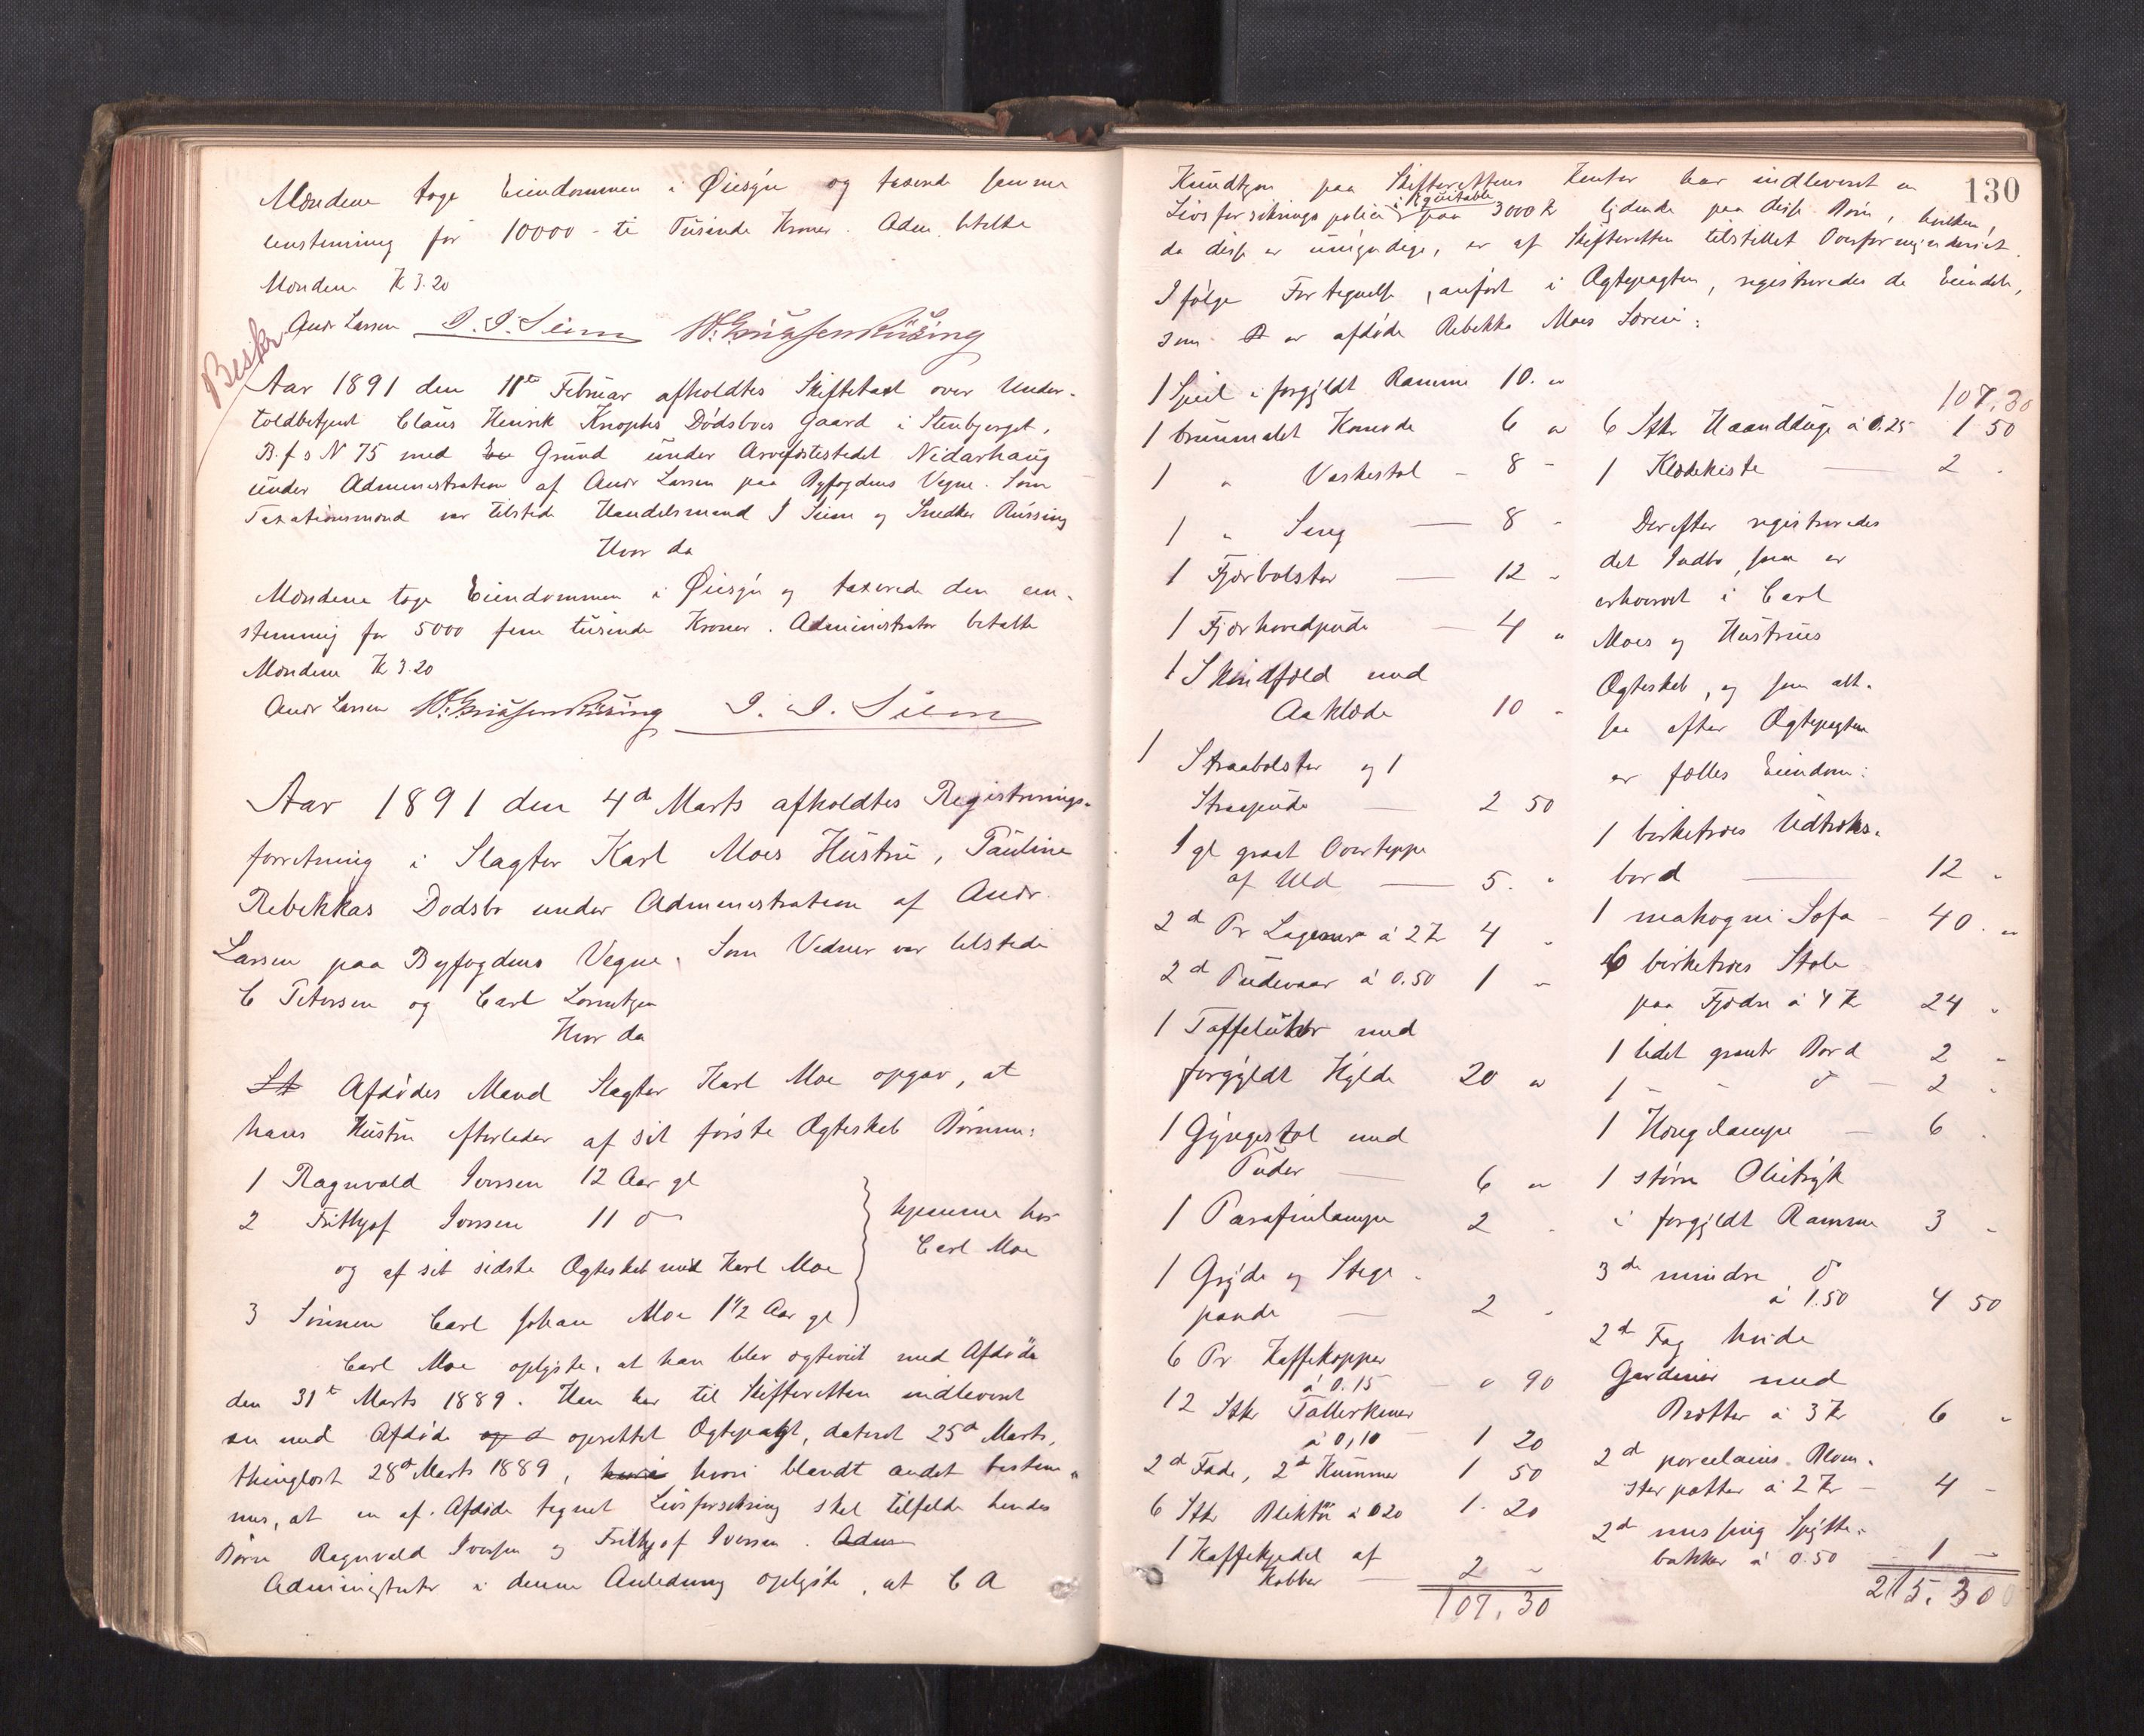 Mændene toge Eiendommen i Øiesyn og taxerede samme
eenstemmig for 10000 - ti Tusinde Kroner. Adm. betalte
Mændene Kr 3.20
Andr Larsen J. J. Siem
Beskr
Aar 1891 den 11te Februar afholdtes Skiftetaxt over Under-
toldbetjent Claus Henrik Knophs Dødsboes Gaard i Stenbjerget,
B.f s N 75 med Grund under Arvefæstestedet Nidarhaug
under Administration af Andr Larsen paa Byfogdens Vegne. Som
Taxationsmænd var tilstede Handelsmand J Siem og Snedker Rüssing
Hvor da
Mændene toge Eiendommen i Øiesyn og taxerede den een-
stemmig for 5000 fem tusinde Kroner. Administrator betalte
Mændene Kr 3.20
Andr Larsen J. J. Siem
Aar 1891 den 4de Marts afholdtes Registrerings-
forretning i Slagter Karl Moes Hustru, Pauline
Rebekkas Dødsbo under Administration af Andr.
Larsen paa Byfogdens Vegne. Som Vidner var tilstede
C Petersen og Carl Lorentzen
Hvor da
Afdødes Mand Slagter Karl Moe opgav, at
hans Hustru efterlader af sit første Ægteskab Børnene:
1 Ragnvald Iversen 12 Aar gl
2 Frithjof Iversen 11 do
og af sit sidste Ægteskab med Karl Moe
3 Sønnen Carl Johan Moe 1 1/2 Aar gl
hjemme hos
Carl Moe
Carl Moe oplyste, at han blev ægteviet med Afdøde
den 31te Marts 1889. Han har til Skifteretten indleveret
en med Afdøde og d oprettet Ægtepagt, dateret 25de Marts,
thinglæst 28de Marts 1889, hvori hvori blandt andet bestem-
mes, at en af Afdøde tegnet Livsforsikring skal tilfalde hendes
Børn Ragnvald Iversen og Frithjof Iversen. Adm
Administrator i denne Anledning oplyste, at C A
130
Knudtzon paa Skifterettens Kontor har indleveret en
Livsforsikringspolice i Equitable paa 3000 Kr lydende paa disse Børn, hvilken,
da disse er umyndige, er af Skifteretten tilstillet Overformynderiet.
Ifølge Fortegnelse, anført i Ægtepagten, registreredes de Eiendele,
som er afdøde Rebekka Moes Særeie:
1 Speil i forgyldt Ramme 10. "
1 brunmalet Komode 6 "
1 " Vaskestol - 8 -
1 " Seng — 8 -
1 Fjærbolster — 12 -
1 Fjærhovedpude — 4 "
1 Skindfæld med
Aaklæde 10 -
1 Straabolster og 1
Straapude — 2 50
1 gl graat Overteppe
af Uld — 5. "
2de Pr Lagener à 2 Kr 4 "
2de Pudevaar à 0.50 1 -
1 Taffeluhr med
forgyldt Hylde 20 "
1 Gyngestol med
Puder — 6 "
1 Parafinlampe 2 -
1 Gryde og Stege-
pande — 2 -
6 Pr Kaffekopper
à 0.15 - " 90
12 Stkr Tallerkener
à 0,10 - 1 20
2de Fade, 2de Kummer 1 50
6 Stkr Bliktøi à 0 20 1. 20
1 Kaffekjedel af
Kobber — 2 -
107, 30
107,30
6 Stkr Haandduge à 0.25 1 50
1 Klædekiste — 2 -
Derefter registreredes
det Indbo, som er
erhvervet i Carl
Moes og Hustrues
Ægteskab, og som alt-
saa efter Ægtepagten
er fælles Eiendom:
1 birketræes Udtræks-
bord — 12 -
1 mahogni Sofa - 40. "
6 birketræes Stole
paa Fjædre à 4 Kr 24 "
1 lidet grønt Bord 2 -
1 - - do - 2 -
1 Hængelampe - 6 -
1 større Olietryk
i forgyldt Ramme 3 -
3de mindre do
à 1.50 4 50
2de Fag hvide
Gardiner med
Brætter à 3 Kr 6 "
2de porcelains Blom-
sterpotter à 2 Kr - 4 -
2de messing Spytte-
bakker à 0.50 1 -
215, 30